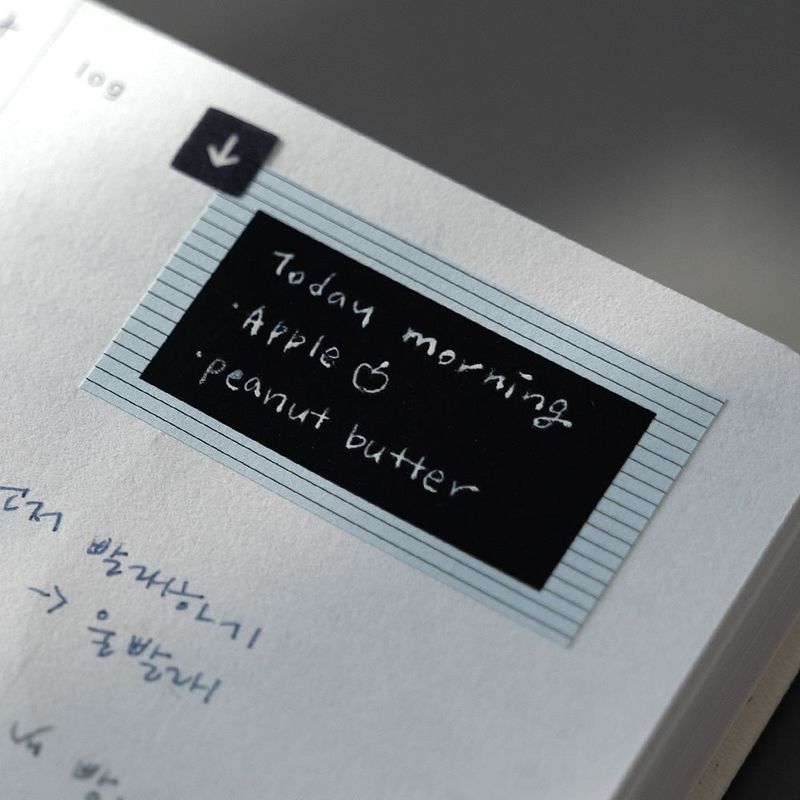 log
Today morning
· Apple
· peanut butter
빨래하기
→ 울빨래